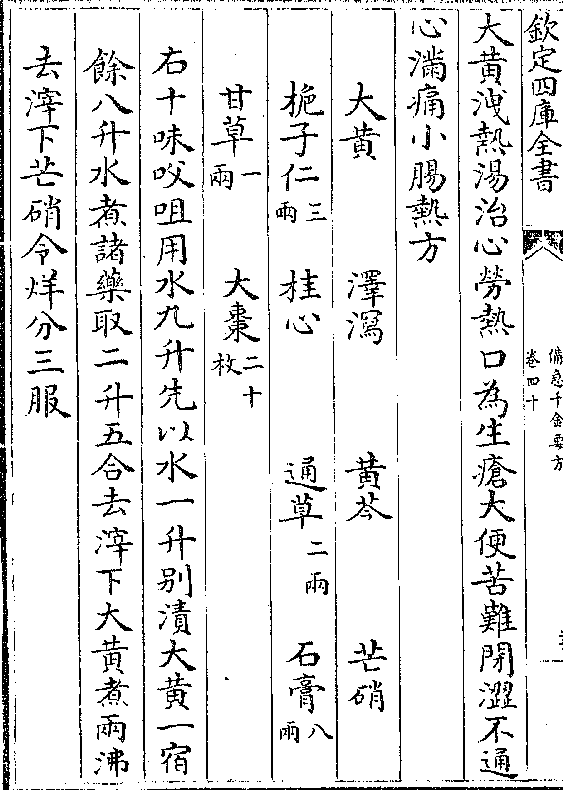 欽定四庫全書
備急千金要方
卷四十
大黄洩熱湯治心勞熱口為生瘡大便苦難閉澀不通
心滿痛小腸熱方
大黄　澤瀉　黄芩　芒硝
梔子仁三兩　桂心　通草二兩　石膏八兩
甘草一兩　大棗二十枚
右十味㕮咀用水九升先以水一升别漬大黄一宿
餘八升水煮諸藥取二升五合去滓下大黄煮兩沸
去滓下芒硝令烊分三服